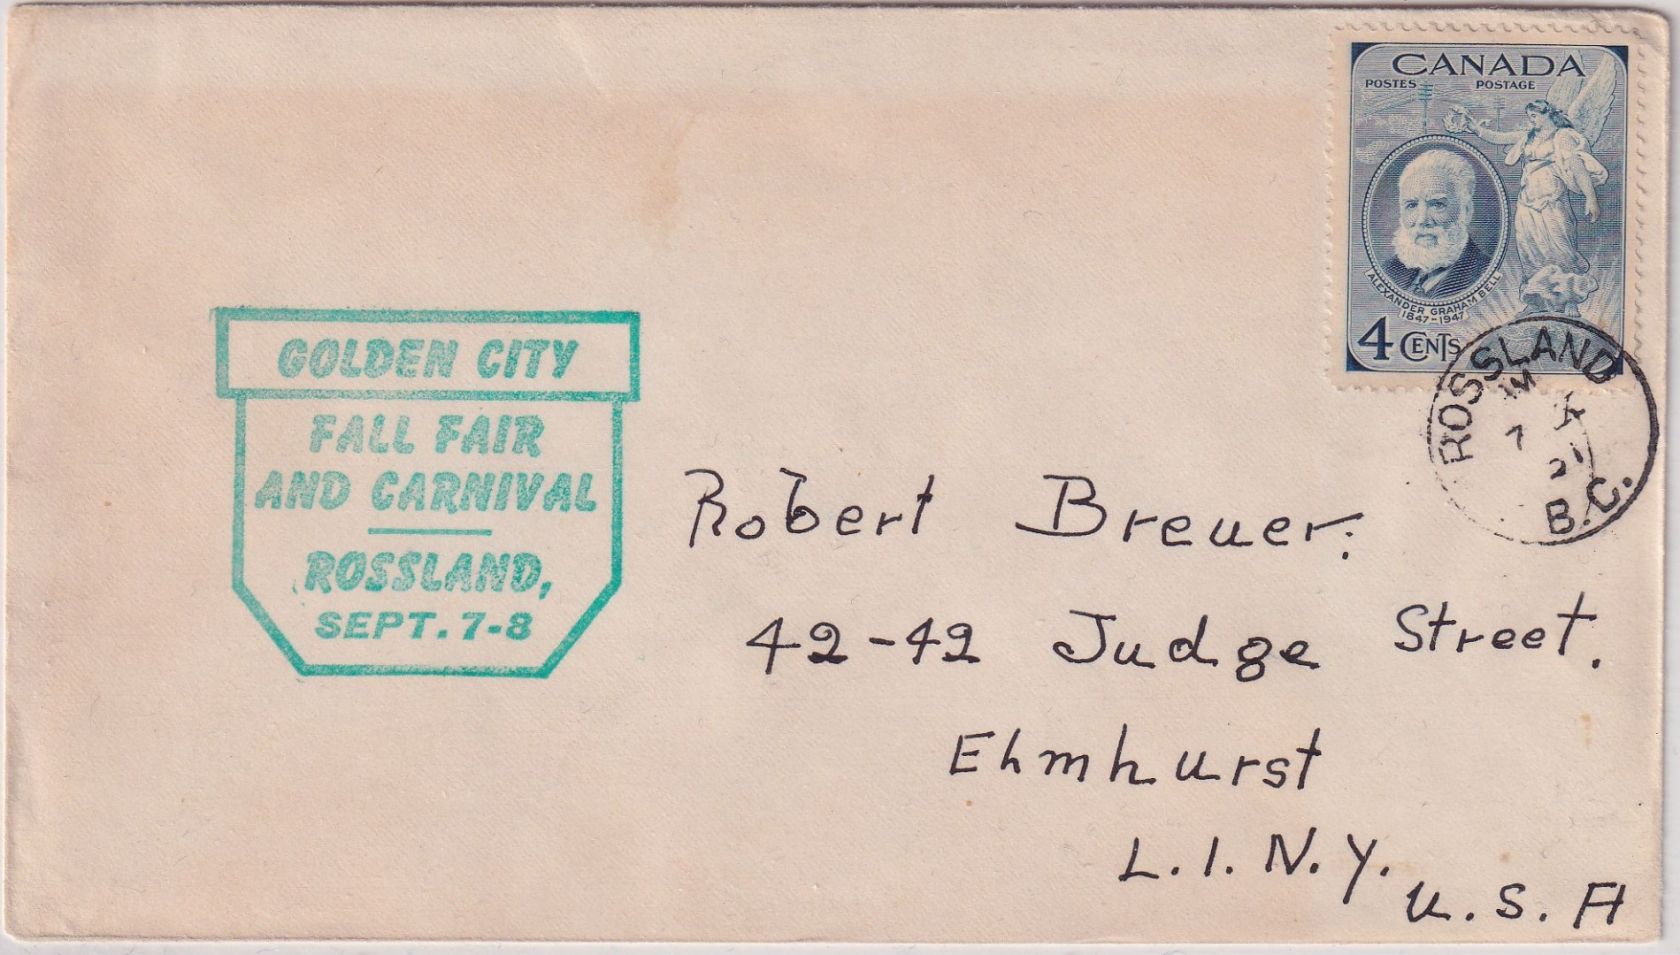 CANADA
POSTES POSTAGE
ALEXANDER GRAHAM BELL
1847-1947
4 CENTS
ROSSLAND
7
B.C.
GOLDEN CITY
FALL FAIR
AND CARNIVAL
ROSSLAND,
SEPT. 7-8
Robert Breuer.
42-42 Judge Street.
Ehmhurst
L.I. N.Y.
U.S.A